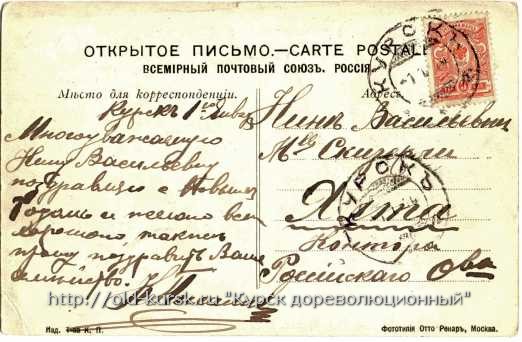 ОТКРЫТОЕ ПИСЬМО.—CARTE POSTALE
ВСЕМІРНЫЙ ПОЧТОВЫЙ СОЮЗЪ. РОССІЯ.
Мѣсто для корреспонденціи.
Адресъ
Курскъ 1го Янв.
Многоуважаемую
Нину Васильевну
поздравляю с Новымъ
Годомъ и желаю всего
хорошаго, также
прошу поздравить Ваше
семейство.
Нинѣ Васильевнѣ
Мlle
Контора
Россійскаго О-ва
КУРСКЪ
КУРСКЪ
http://old-kursk.ru "Курск дореволюционный"
Изд. К. П.
Фототипія Отто Ренаръ, Москва.